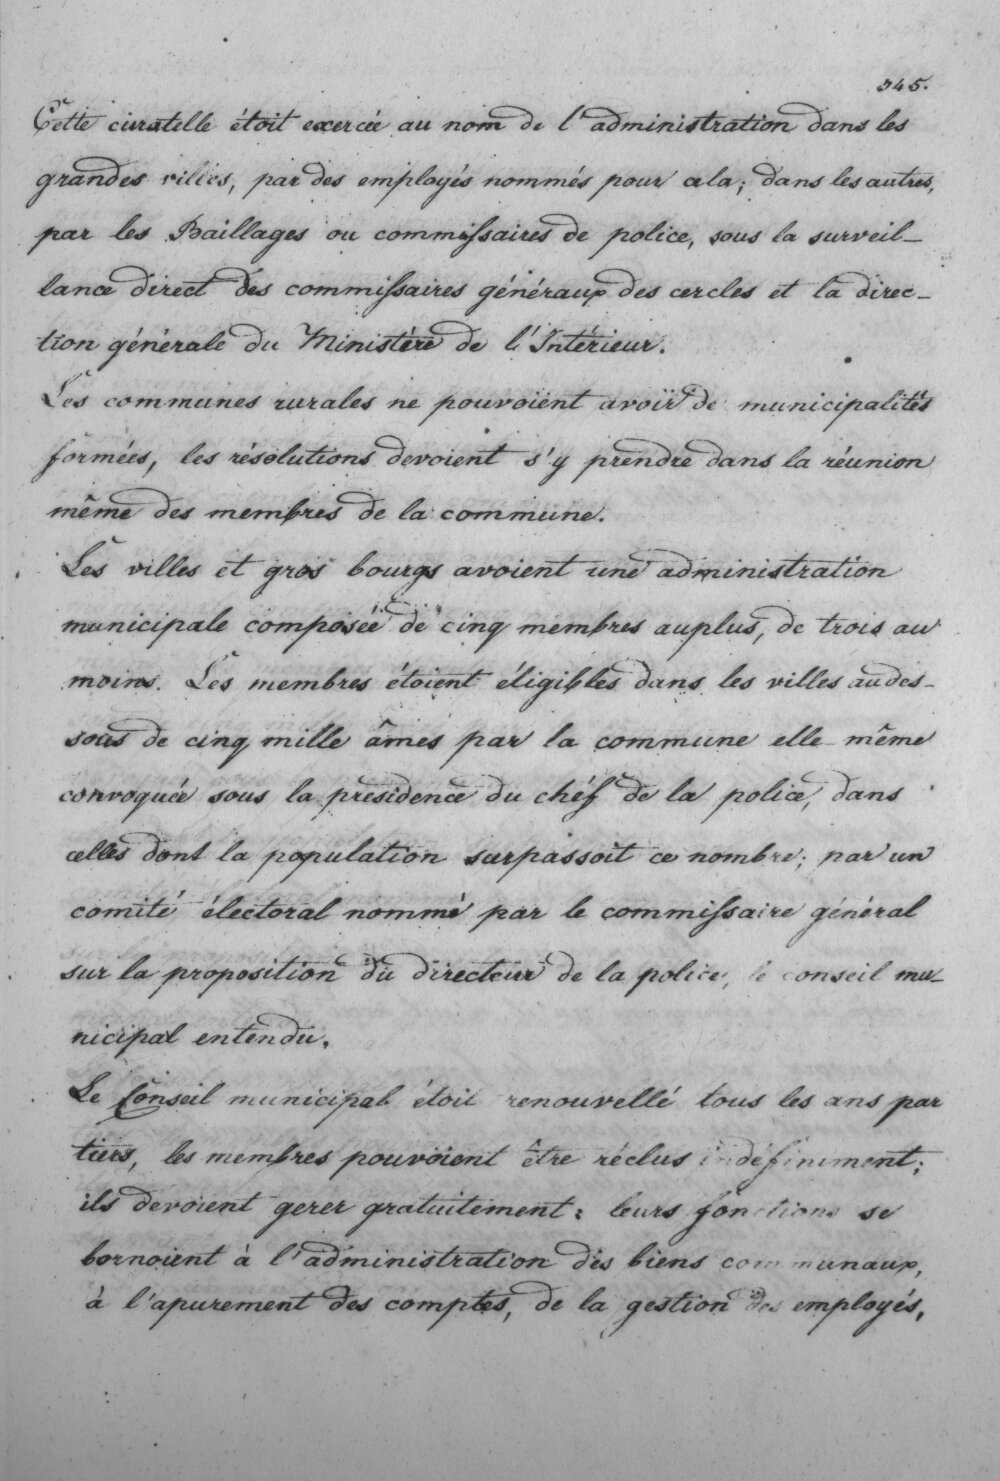 345.
Cette curatelle étoit exercée au nom de l'administration dans les
grandes villes, par des employés nommés pour cela; dans les autres,
par les Baillages ou commissaires de police, sous la surveil-
lance direct des commissaires généraux des cercles et la direc-
tion générale du Ministère de l'Intérieur.
Les communes rurales ne pouvoient avoir de municipalités
formées, les résolutions devoient s'y prendre dans la réunion
même des membres de la commune.
Les villes et gros bourgs avoient une administration
municipale composée de cinq membres auplus, de trois au
moins. Les membres étoient éligibles dans les villes audes-
sous de cinq mille âmes par la commune elle-même
convoquée sous la présidence du chéf de la police, dans
celles dont la population surpassoit ce nombre; par un
comité électoral nommé par le commissaire général
sur la proposition du directeur de la police, le conseil mu-
nicipal entendu.
Le Conseil municipal étoit renouvellé tous les ans par
tiers, les membres pouvoient être réclus indéfiniment;
ils devoient gerer gratuitement: leurs fonctions se
bornoient à l'administration des biens communaux,
à l'apurement des comptes, de la gestion des employés,